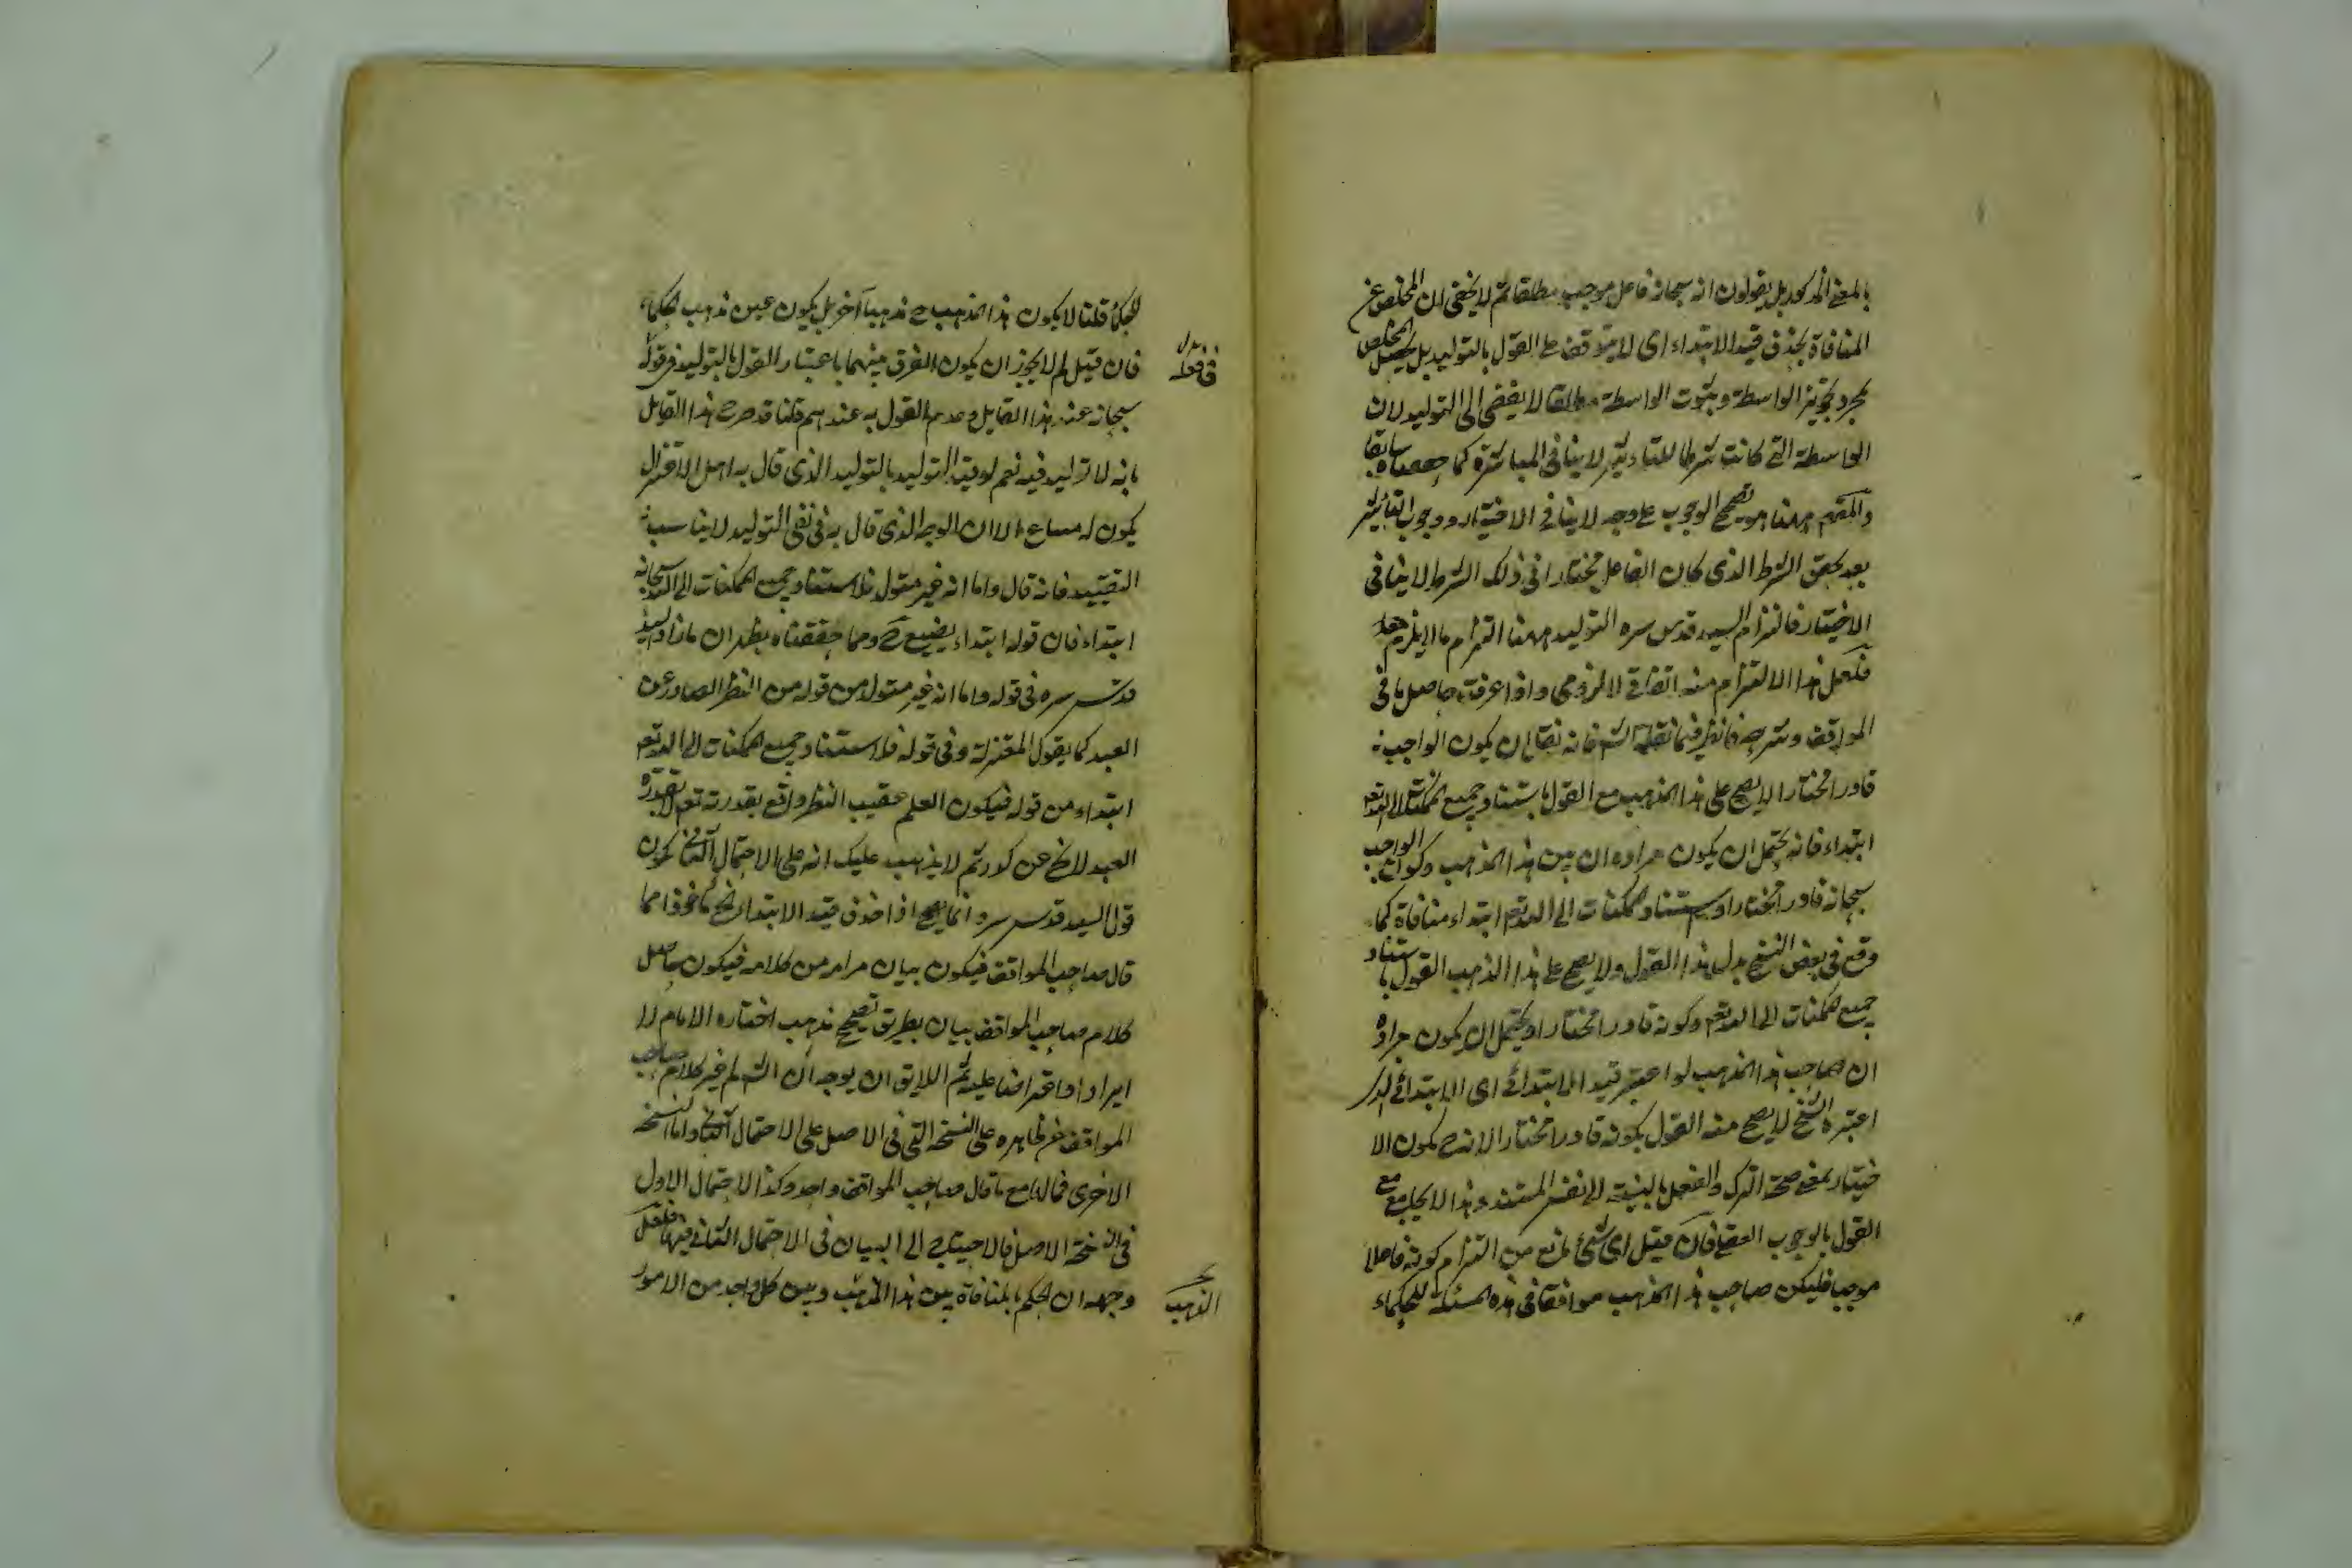 بالمعنى المذكور بل يقولون انه سبحانه فاعل موجب مطلقا ثم لا يخفى ان المخلص عن
المنافاة بحذف قيد الابتداء اى لا يتوقف على القول بالتوليد بل يحصل المخلص
بمجرد تجويز الواسطة وثبوت الواسطة مطلقا لا يفضى الى التوليد لان
الواسطة التى كانت شرطا للتاثير لا ينافى المباشرة كما حققناه سابقا
ههنا هو تصحيح الوجوب على وجه لا ينافى الاختيار ووجوب التأثير
بعد تحقق الشرط الذى كان الفاعل مختارا فى ذلك الشرط لا ينافى
الاختيار فالتزام السيد قدس سره التوليد ههنا التزام ما لا يلزم
فلعل هذا الالتزام منه اتفاقى لا لزومى واذا عرفت حاصل ما فى
المواقف وشرحه فانظر فيما نقله الش فانه نقل ان يكون الواجب
قادرا مختارا لا يصح على هذا المذهب مع القول باستناد جميع الممكنات الى الله تعم
ابتداء فانه يحتمل ان يكون مراده ان بين هذا المذهب وكون الواجب
سبحانه قادرا مختارا واستناد الممكنات الى الله تعم ابتداء منافاة كما
وقع فى بعض النسخ بدل هذا القول ولا يصح على هذا المذهب القول باستناد
جميع الممكنات الى الله تعم وكونه قادرا مختارا ويحتمل ان يكون مراده
ان صاحب هذا المذهب لو اعتبر قيد الابتدائى اى الابتدائى الذى
اعتبره الشيخ لا يصح منه القول بكونه قادرا مختارا لانه ح يكون الا
ختيار بمعنى صحة الترك والفعل بالنسبة الى نفس المستند وهذا لا يجامع مع
القول بالوجوب العقلى فان قيل اى شئ يمنع من التزام كونه فاعلا
موجبا فليكن صاحب هذا المذهب موافقا فى هذه المسئلة للحكماء
للحكماء قلنا لا يكون هذا المذهب ح مذهبا آخر بل يكون عين مذهب الحكماء
فان قيل لم لا يجوز ان يكون الفرق بينهما باعتبار القول بالتوليد فى قوله
سبحانه عند هذا القايل وعدم القول به عندهم قلنا قد صرح هذا القايل
بانه لا توليد فيه نعم لو قيد التوليد بالتوليد الذى قال به اهل الاعتزال
يكون له مساغ الا ان الوجه الذى قال به فى نفى التوليد لا يناسب
التقييد فانه قال واما انه غير متولد فلاستناد جميع الممكنات الى الله سبحانه
ابتداء فان قوله ابتداء يضيع ح ومما حققناه يظهر ان ما زاد السيد
قدس سره فى قوله واما انه غير متولد من قوله من النظر الصادر عن
العبد كما يقول المعتزلة وفى قوله فلاستناد جميع الممكنات الى الله تعم
ابتداء من قوله فيكون العلم عقيب النظر واقع بقدرته تعم لا بقدرة
العبد لا يخ عن كدر ثم لا يذهب عليك انه على الاحتمال الثانى يكون
قول السيد قدس سره انما يصح اذا حذف قيد الابتداء مأخوذا مما
قال صاحب المواقف فيكون بيان مرامه من كلامه فيكون حاصل
كلام صاحب المواقف بيان بطريق تصحيح مذهب اختاره الامام لا
ايرادا واعتراضا عليه ثم اللايق ان يوجه ان الش لم غير كلام صاحب
المواقف عن ظاهره على النسخة التى فى الاصل على الاحتمال الثانى واما النسخة
الاخرى فمالها مع ما قال صاحب المواقف واحد وكذا الاحتمال الاول
فى النسخة الاصل فالاحتياج الى البيان فى الاحتمال الثانى فيها فلعل
وجهه ان الحكم بالمنافاة بين هذا المذهب وبين كل واحد من الامور
المذهب